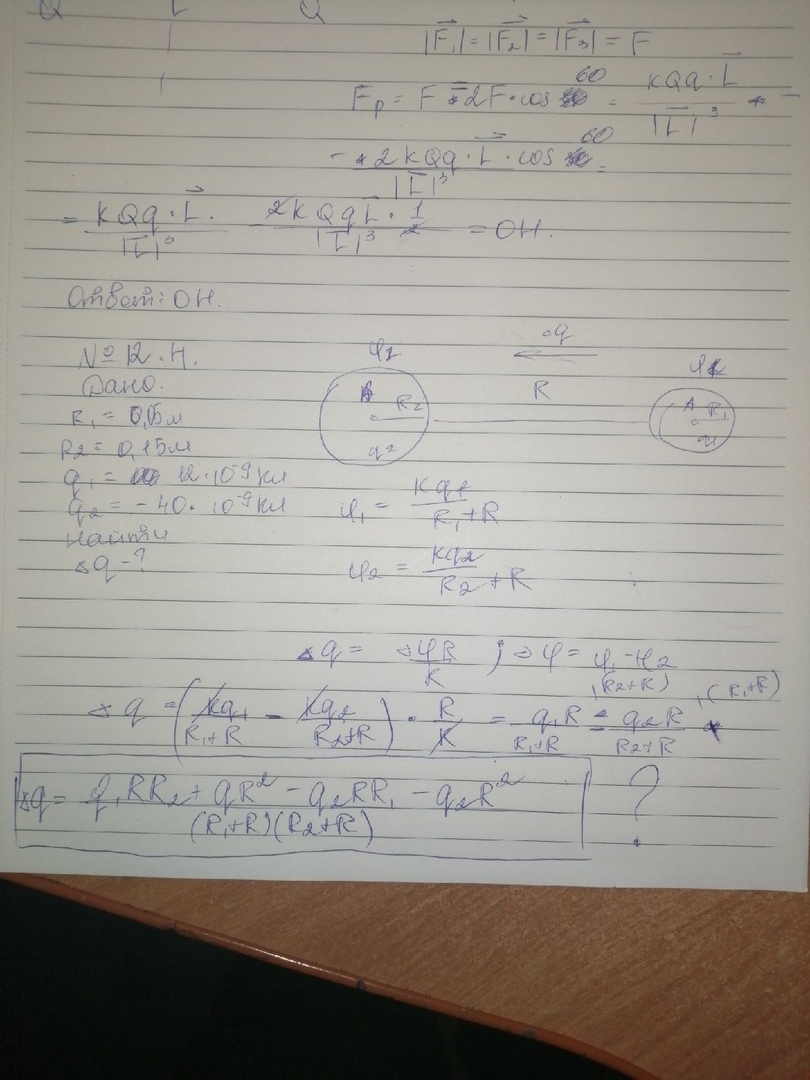 Q L Q
|F₁| = |F₂| = |F₃| = F
Fр = F - 2F · cos 60 = kQq · L / |L|³ -
- 2kQq · L · cos 60 / |L|³ =
= kQq · L / |L|³ 2kQqL · 1 / |L|³ 2 = 0Н.
Ответ: 0Н.
№ 12.4.
Дано.
R₁ = 0,05м
R₂ = 0,15м
q₁ = 12·10⁻⁹ Кл
q₂ = -40·10⁻⁹ Кл
Найти
Δq - ?
φ₂ R₂ q₂
Δq
R
R₁ q₁
φ₁ = kq₁ / R₁+R
φ₂ = kq₂ / R₂+R
Δq = ΔφR / k ; Δφ = φ₁-φ₂
Δq = (kq₁ / R₁+R - kq₂ / R₂+R) · R / k = q₁R / R₁+R - q₂R / R₂+R
(R₂+R) (R₁+R)
Δq = q₁RR₂ + qR² - q₂RR₁ - q₂R² / (R₁+R)(R₂+R) ?